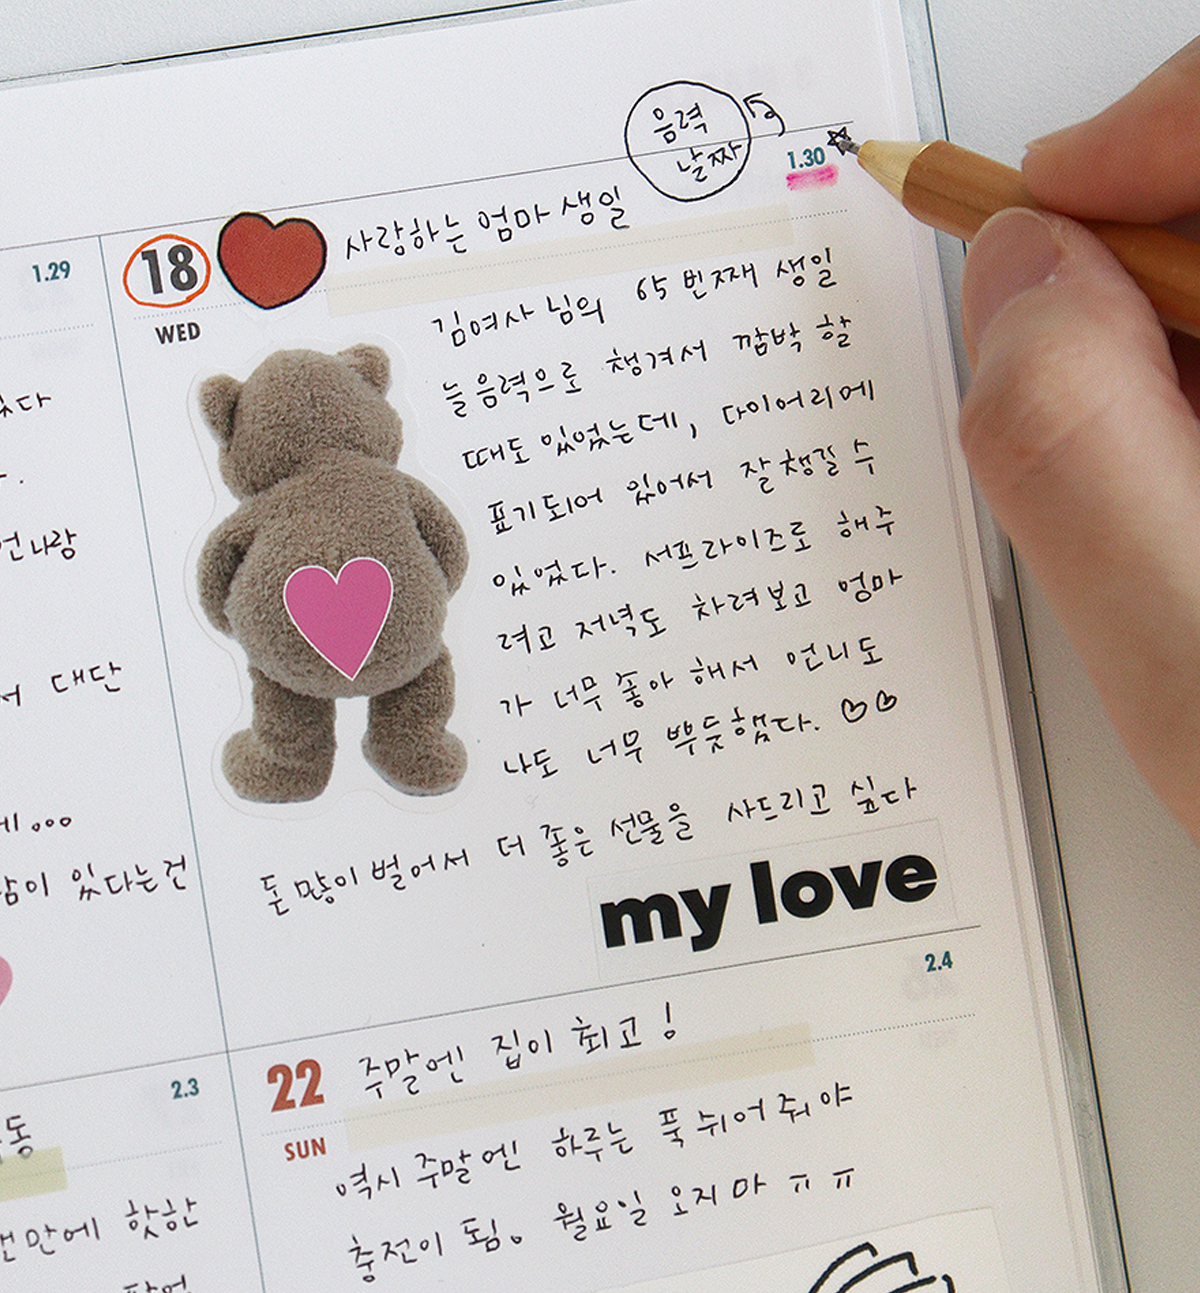 음력
날짜
1.30
1.29
18
사랑하는 엄마 생일
WED
김여사님의 65번째 생일
늘 음력으로 챙겨서 깜박 할
때도 있었는데, 다이어리에
표기되어 있어서 잘 챙길 수
있었다. 서프라이즈로 해주
려고 저녁도 차려보고 엄마
가 너무 좋아 해서 언니도
나도 너무 뿌듯했다. ♡♡
돈 많이 벌어서 더 좋은 선물을 사드리고 싶다
my love
대단
있다는건
2.3
2.4
22
주말엔 집이 최고!
SUN
역시 주말엔 하루는 푹 쉬어줘야
충전이 됨。 월요일 오지마 ㅠㅠ
핫한